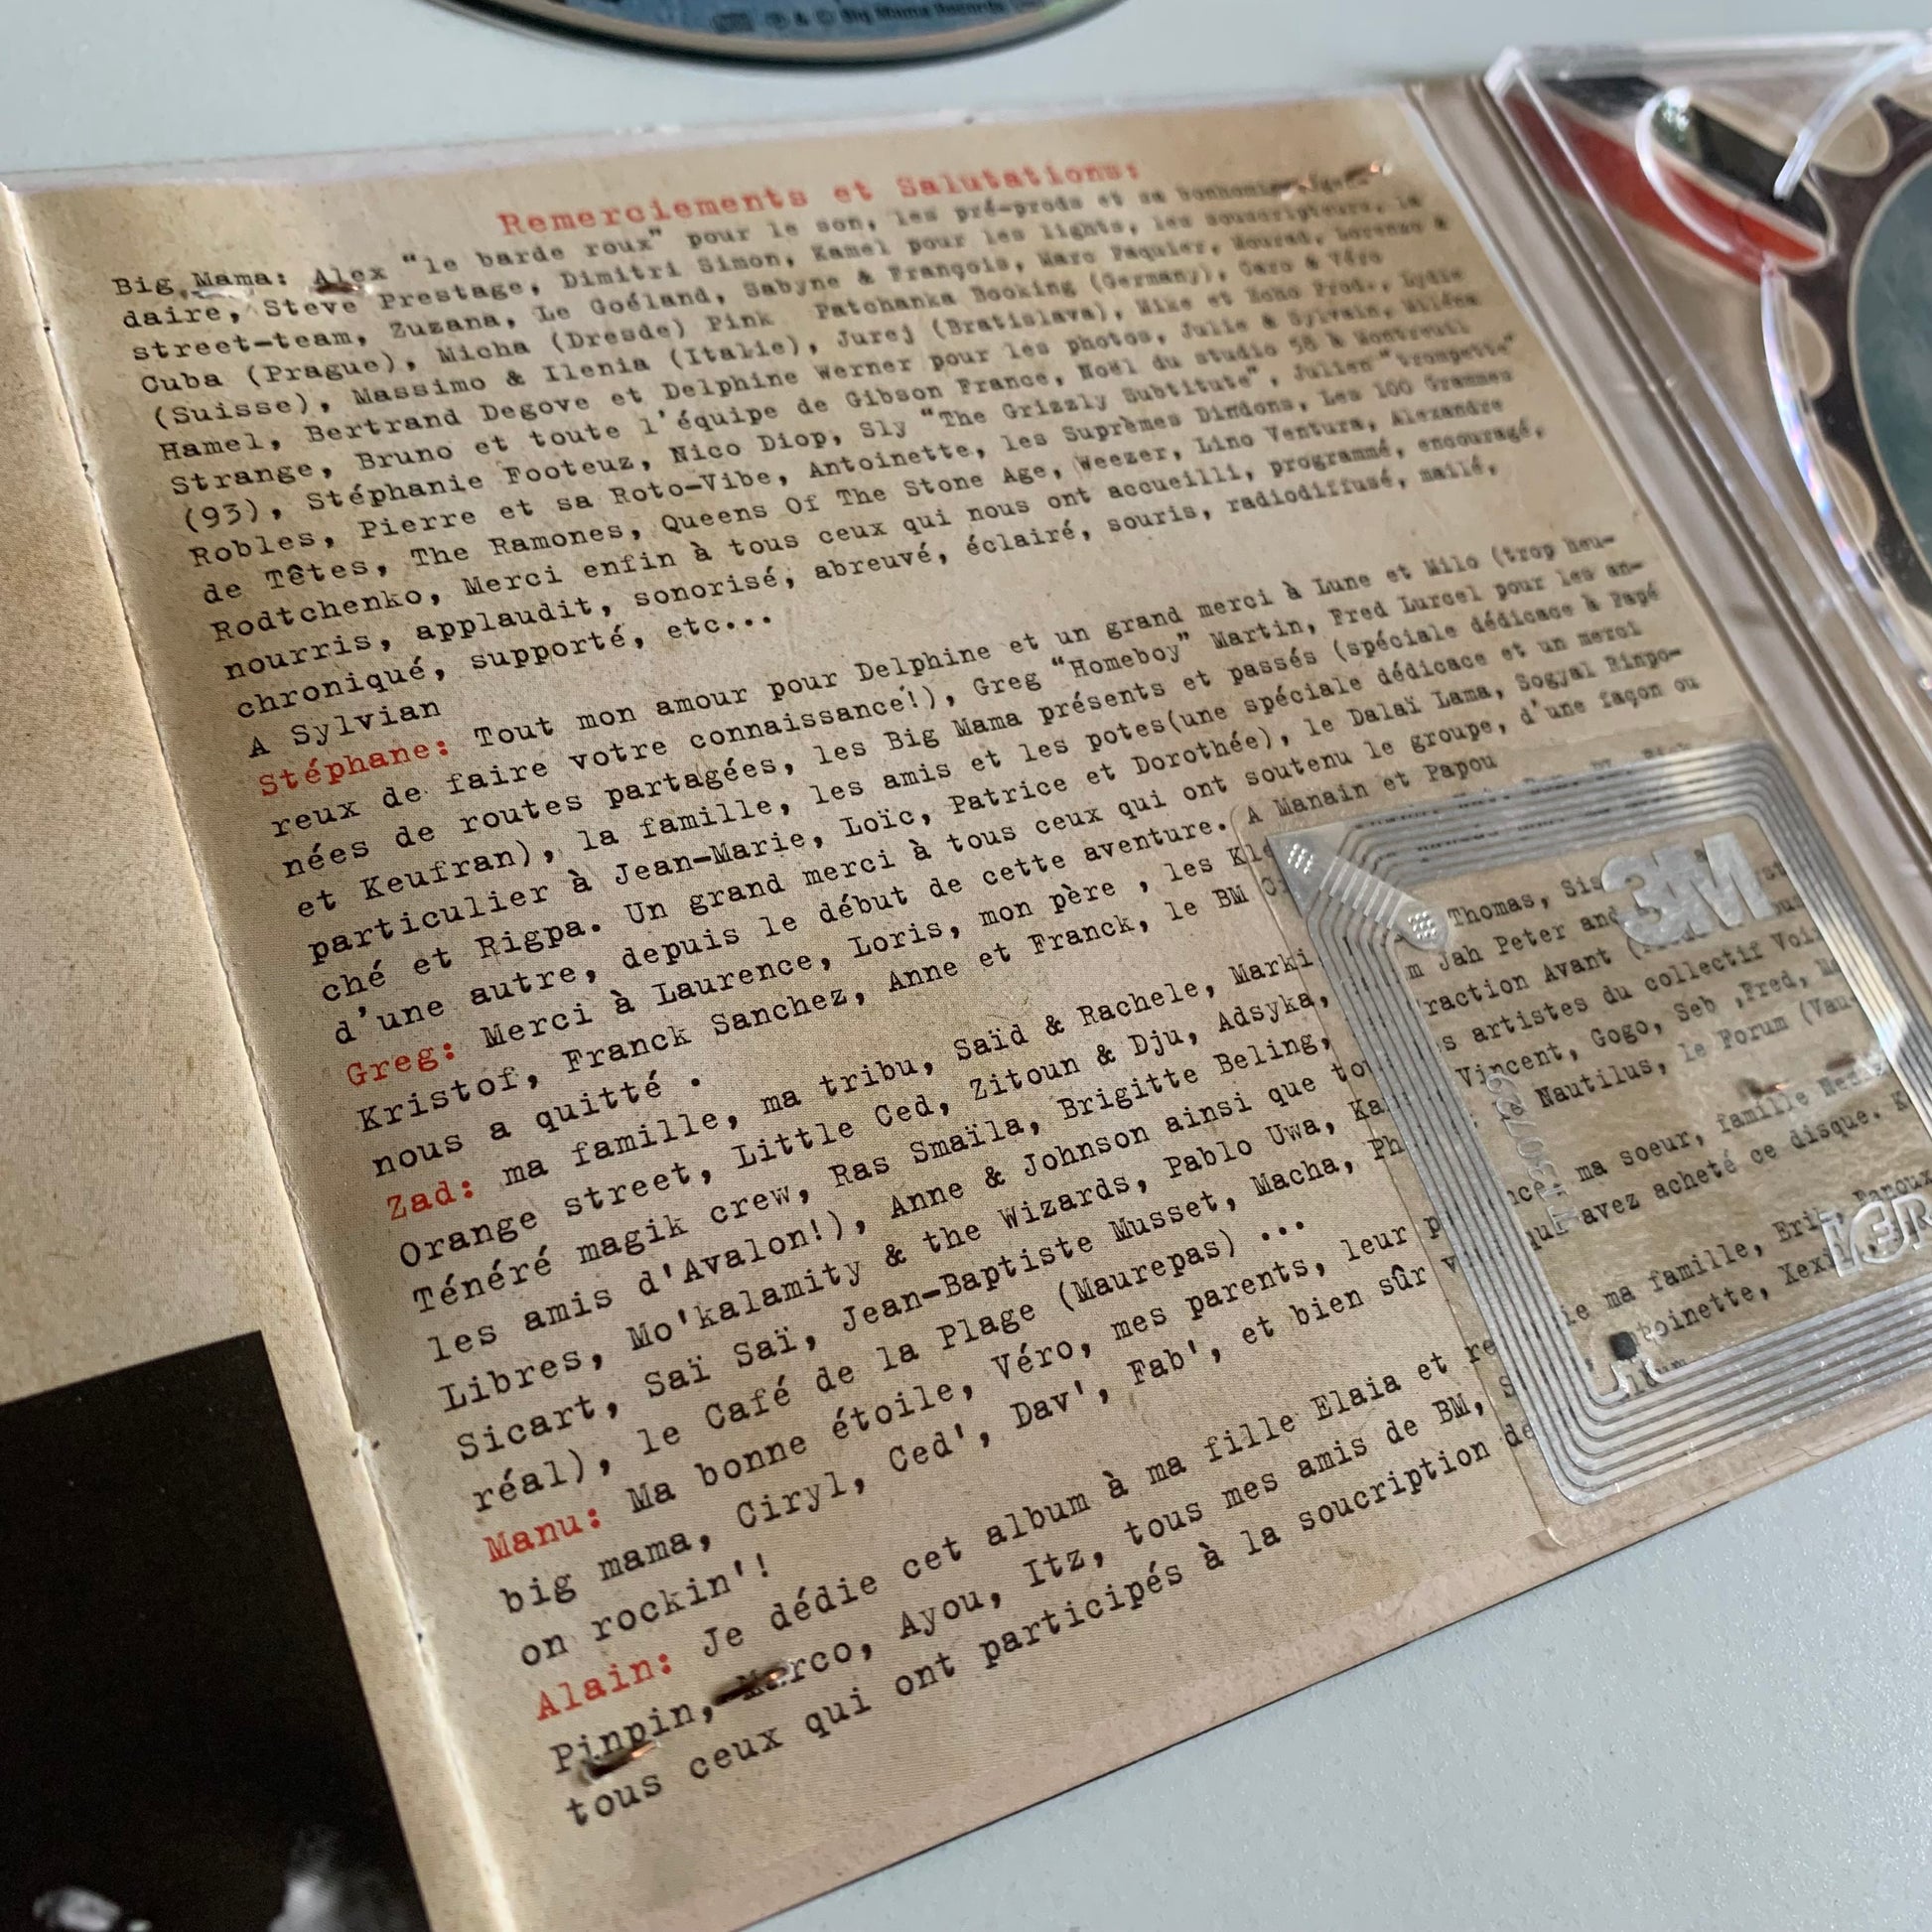 Big Mama Records
Remerciements et Salutations:
Big Mama: Alex "le barde roux" pour le son, les pré-prods et sa bonhomie
daire, Steve Prestage, Dimitri Simon, Kamel pour les lights, les souscripteurs, la
street-team, Zuzana, Le Goéland, Sabyne & François, Marc Paquier, Mourad, Lorenzo &
Cuba (Prague), Micha (Dresde) Pink Patchanka Booking (Germany), Caro & Véro
(Suisse), Massimo & Ilenia (Italie), Jurej (Bratislava), Mike et Echo Prod., Lydie
Hamel, Bertrand Degove et Delphine Werner pour les photos, Julie & Sylvain, Miléna
Strange, Bruno et toute l'équipe de Gibson France, Noël du studio 58 à Montreuil
(93), Stéphanie Footeuz, Nico Diop, Sly "The Grizzly Subtitute", Julien "trompette"
Robles, Pierre et sa Roto-Vibe, Antoinette, les Suprèmes Dindons, Les 100 Grammes
de Têtes, The Ramones, Queens Of The Stone Age, Weezer, Lino Ventura, Alexandre
Rodtchenko, Merci enfin à tous ceux qui nous ont accueilli, programmé, encouragé,
nourris, applaudit, sonorisé, abreuvé, éclairé, souris, radiodiffusé, mailé,
chroniqué, supporté, etc...
A Sylvian
Stéphane: Tout mon amour pour Delphine et un grand merci à Lune et Milo (trop heu-
reux de faire votre connaissance!), Greg "Homeboy" Martin, Fred Lurcel pour les an-
nées de routes partagées, les Big Mama présents et passés (spéciale dédicace à Papé
et Keufran), la famille, les amis et les potes(une spéciale dédicace et un merci
particulier à Jean-Marie, Loïc, Patrice et Dorothée), le Dalaï Lama, Sogyal Rinpo-
ché et Rigpa. Un grand merci à tous ceux qui ont soutenu le groupe, d'une façon ou
d'une autre, depuis le début de cette aventure. A Manain et Papou
Greg: Merci à Laurence, Loris, mon père , les
Kristof, Franck Sanchez, Anne et Franck, le BM Thomas,
nous a quitté .
Zad: ma famille, ma tribu, Saïd & Rachele, Jah Peter and
Orange street, Little Ced, Zitoun & Dju, Adsyka, Avant
Ténéré magik crew, Ras Smaïla, Brigitte Beling, artistes du collectif
les amis d'Avalon!), Anne & Johnson ainsi que Vincent, Gogo, Seb ,Fred,
Libres, Mo'kalamity & the Wizards, Pablo Uwa, Nautilus, le Forum
Sicart, Saï Saï, Jean-Baptiste Musset, Macha,
réal), le Café de la Plage (Maurepas) ...
Manu: Ma bonne étoile, Véro, mes parents, leur ma soeur, famille
big mama, Ciryl, Ced', Dav', Fab', et bien sûr avez acheté ce disque.
on rockin'!
Alain: Je dédie cet album à ma fille Elaia et ma famille,
Pinpin, Marco, Ayou, Itz, tous mes amis de BM,
tous ceux qui ont participés à la soucription
3M